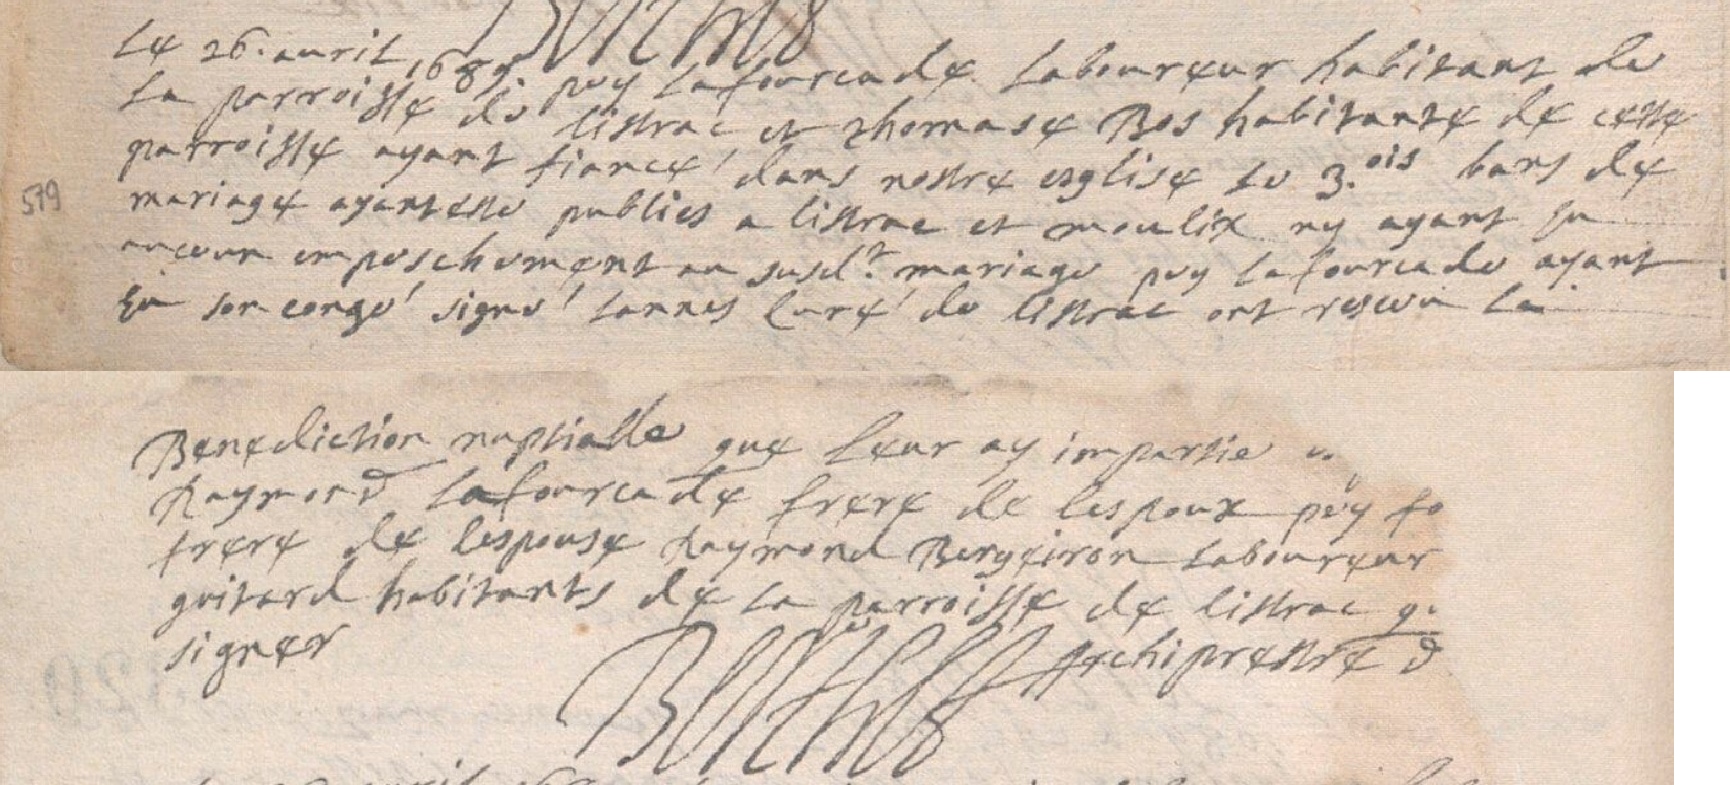 Le 26. auril 1689. pey Lafourcade Laboureur habitant de
La parroisse de listrac et thomase Bos habitante de ceste
parroisse ayant fiancé dans nostre esglise le 3.ois bans de
mariage ayant esté publies a listrac et moulix ny ayant eu
aucun empeschement au susd.t mariage pey Lafourcade ayant
eu son congé signé Lannes Curé de listrac ont rescu La
579
Benediction nuptialle que leur ay impartie
Raymond Lafourcade frere de lespoux pey
frere de lespouse Raymond Bergeiron Laboureur
guitard habitants de La parroisse de listrac
signer
Archiprestre d